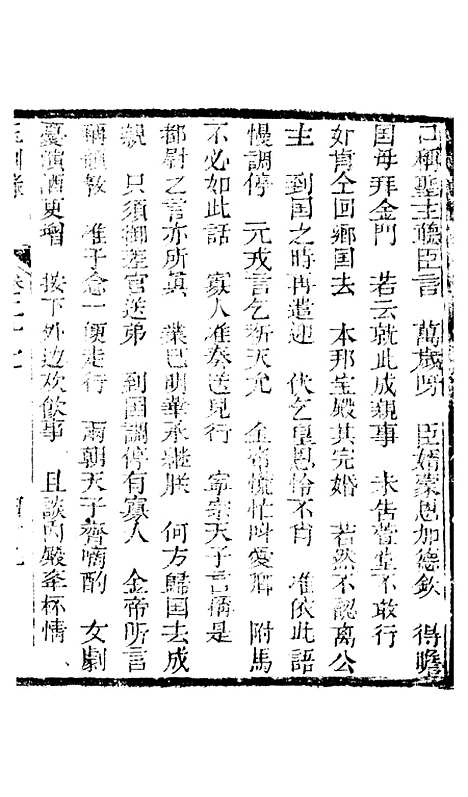 口稱聖主聽臣言　萬歲呀　臣婿蒙恩加德欽　得瞻
国母拜金門　若云就此成親事　未告萱堂不敢行
如肯仝回鄉国去　本邦宝殿共完婚　若然不認离公
主　到国之時再遣迎　伏乞皇恩怜不肖　准依此語
慢調停　元戎言乞祈天允　金帝慌忙叫爱卿　附馬
不必如此話　寡人准奏送児行　寧宗天子言稱是
都尉之言亦所真　業已明華承継朕　何方歸国去成
親　只須御差官送弟　到国調停有寡人　金帝所言
稱領教　准子念一便走行　兩朝天子齊酌　女劇
憂酒更增　按下外边欢飲事　且談內殿奉杯情、